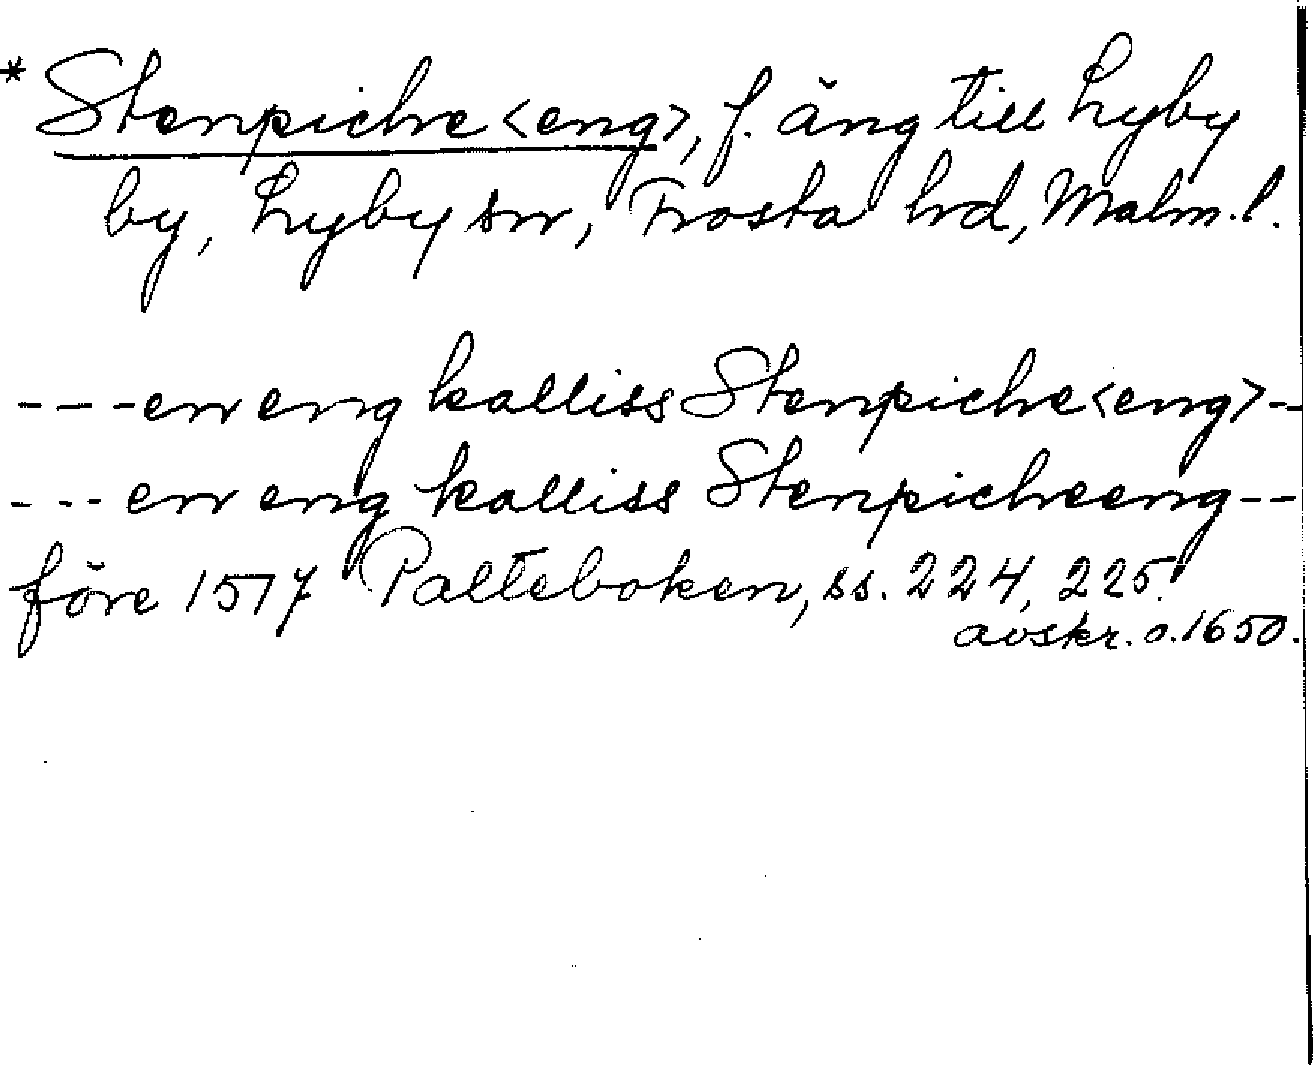 * Stenpiche <eng>, f. äng till Lyby
by, Lyby sn, Frosta hd, Malm. l.
---en eng kalliss Stenpiche<eng>-
---en eng kalliss Stenpicheeng--
före 1517 Palteboken, ss. 224, 225.
avskr. o. 1650.